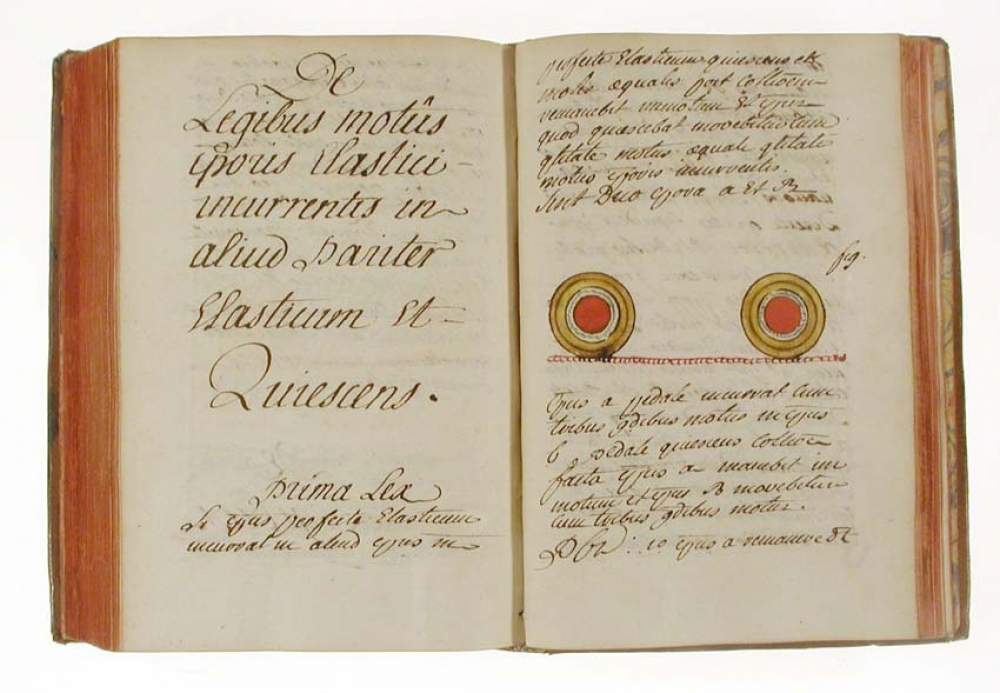 De
Legibus motûs
cporis Elastici
incurrentis in
aliud pariter
Elasticum Et
Quiescens.
prima Lex
Si cpus perfecte Elasticum
incurrat in aliud cpus
perfecte Elasticum quiescens et
molis æqualis post collionem
remanebit immotum Et cpus
quod quiescebat movebitur cum
qtitate motus æquali qtitati
motus cporis incurrentis.
sint Duo cpora a Et B
fig.
Cpus a pedale incurrat cum
tribus gdibus motus in cpus
b pedale quiescens collione
facta cpus a manebit im
motum et cpus B movebitur
cum tribus gdibus motus.
1o cpus a remanere Et